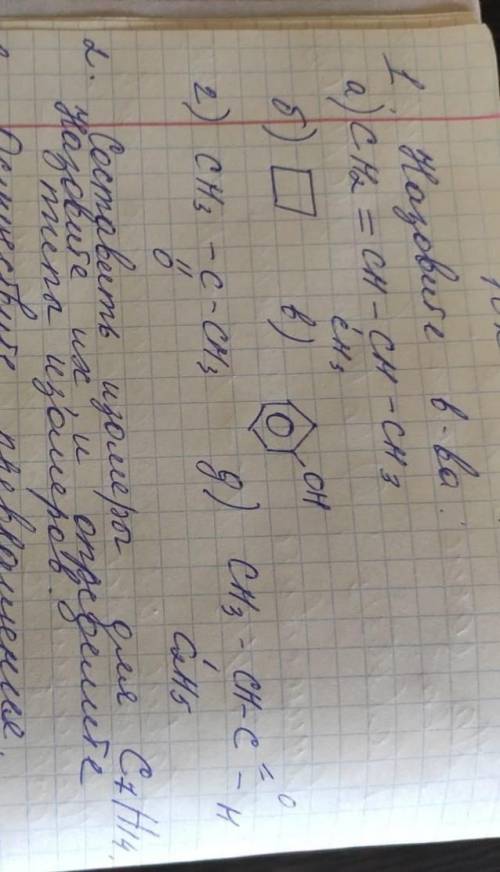 1. Назовите в-ва:
а) CH2 = CH - CH - CH3
CH3
б) в) OH
г) CH3 - C - CH3 д) CH3 - CH - C = O - H
O C2H5
2. Составить изомеры для C7H14.
Назовите их и определите
типы изомеров.
Осуществите превращения.